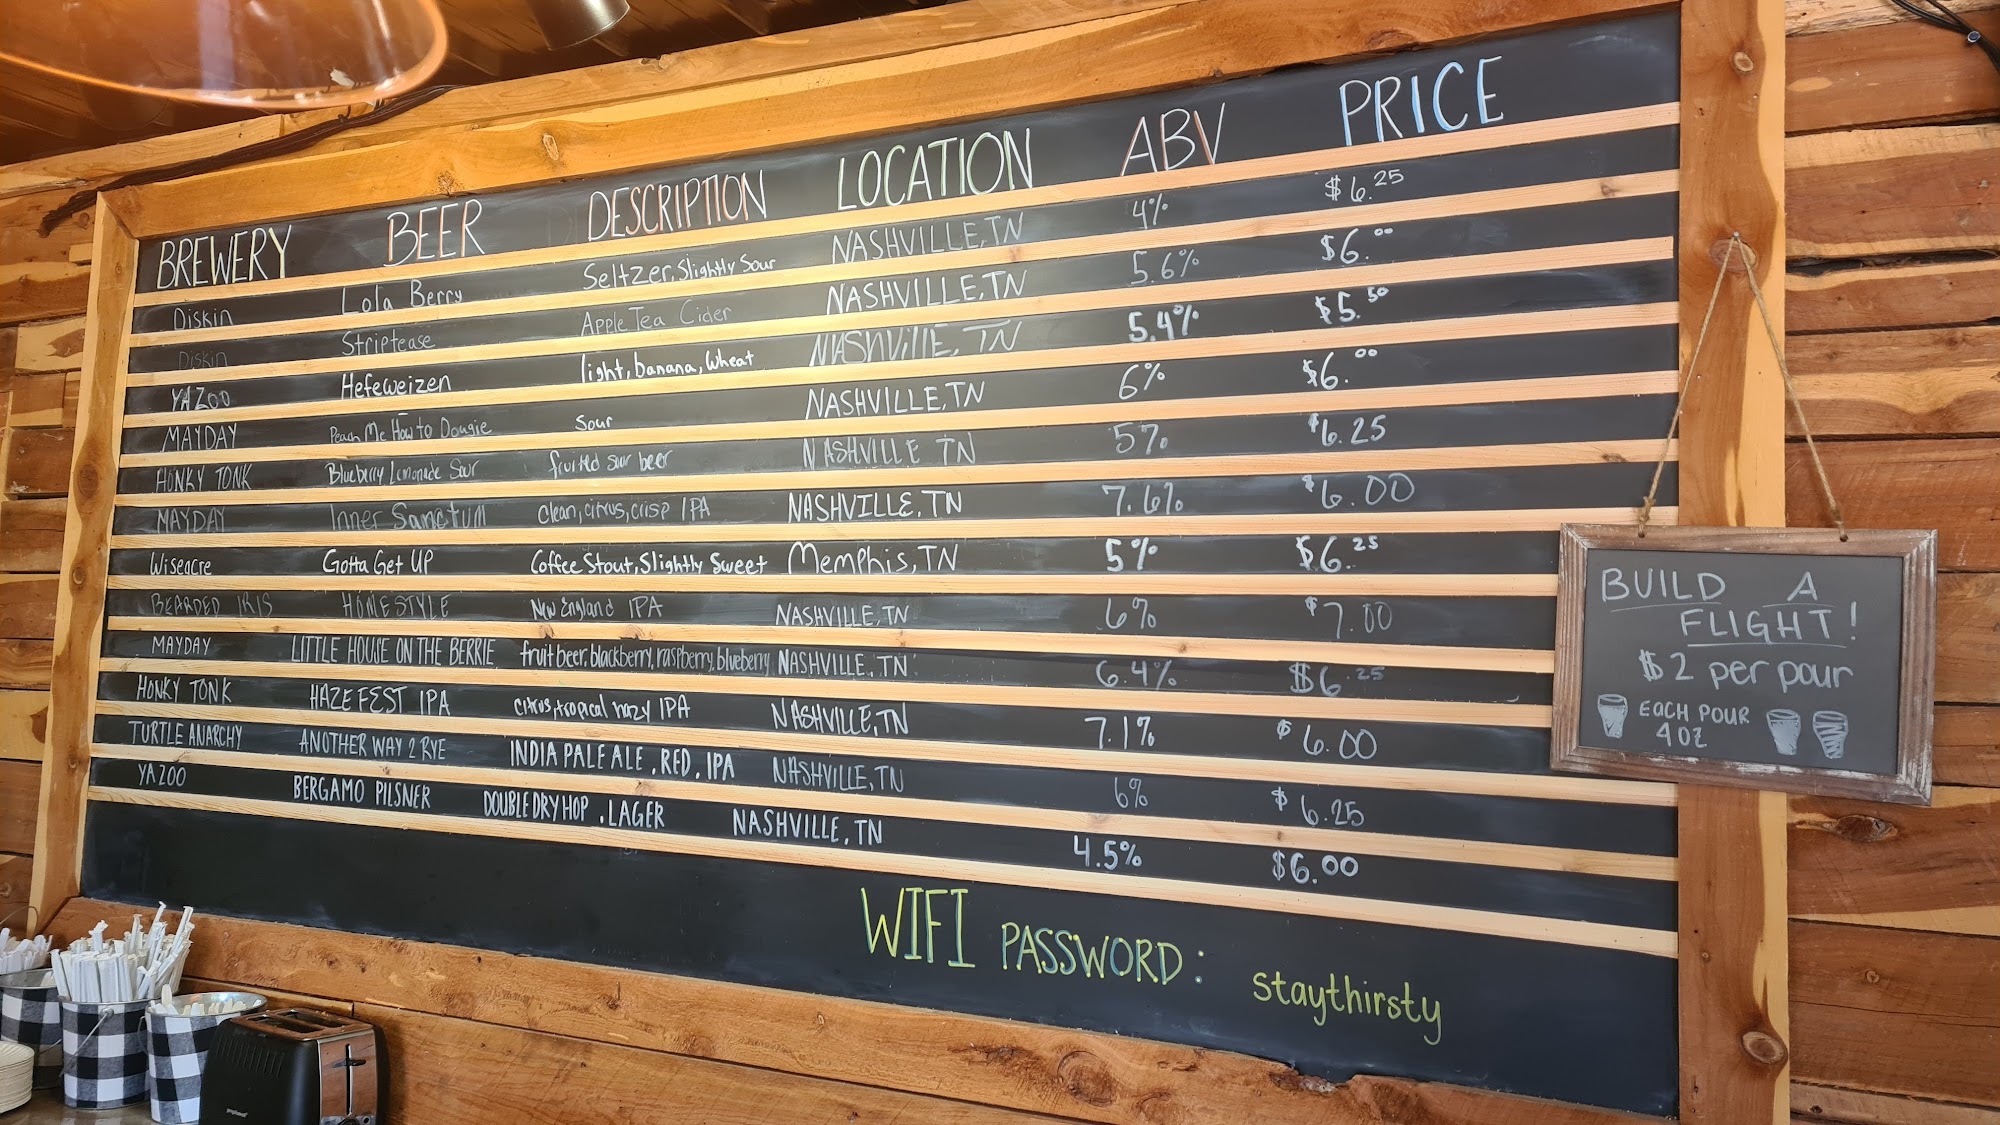 BREWERY BEER DESCRIPTION LOCATION ABV PRICE
Diskin Lola Berry Seltzer, Slightly Sour NASHVILLE, TN 4% $6.25
Diskin Striptease Apple Tea Cider NASHVILLE, TN 5.6% $6.00
YAZOO Hefeweizen light, banana, wheat NASHVILLE, TN 5.4% $5.50
MAYDAY Peach Me How to Dougie Sour NASHVILLE, TN 6% $6.00
HONKY TONK Blueberry Lemonade Sour fruited sour beer NASHVILLE TN 5% $6.25
MAYDAY Inner Sanctum clean, citrus, crisp IPA NASHVILLE, TN 7.6% $6.00
Wiseacre Gotta Get UP Coffee Stout, Slightly Sweet Memphis, TN 5% $6.25
BEARDED IRIS HOMESTYLE New England IPA NASHVILLE, TN 6% $7.00
MAYDAY LITTLE HOUSE ON THE BERRIE fruit beer, blackberry, raspberry, blueberry NASHVILLE, TN 6.4% $6.25
HONKY TONK HAZE FEST IPA citrus, tropical hazy IPA NASHVILLE, TN 7.1% $6.00
TURTLE ANARCHY ANOTHER WAY 2 RYE INDIA PALE ALE, RED, IPA NASHVILLE, TN 6% $6.25
YAZOO BERGAMO PILSNER DOUBLE DRY HOP, LAGER NASHVILLE, TN 4.5% $6.00
WIFI PASSWORD: staythirsty
BUILD A
FLIGHT!
$2 per pour
EACH POUR
4OZ